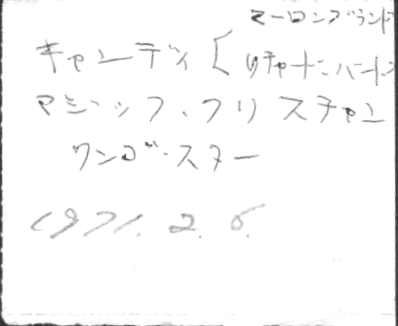 マーロンブランド
キャンディ [ リチャード・バートン
マジック・クリスチャン
リンゴ・スター
1971. 2. 6.